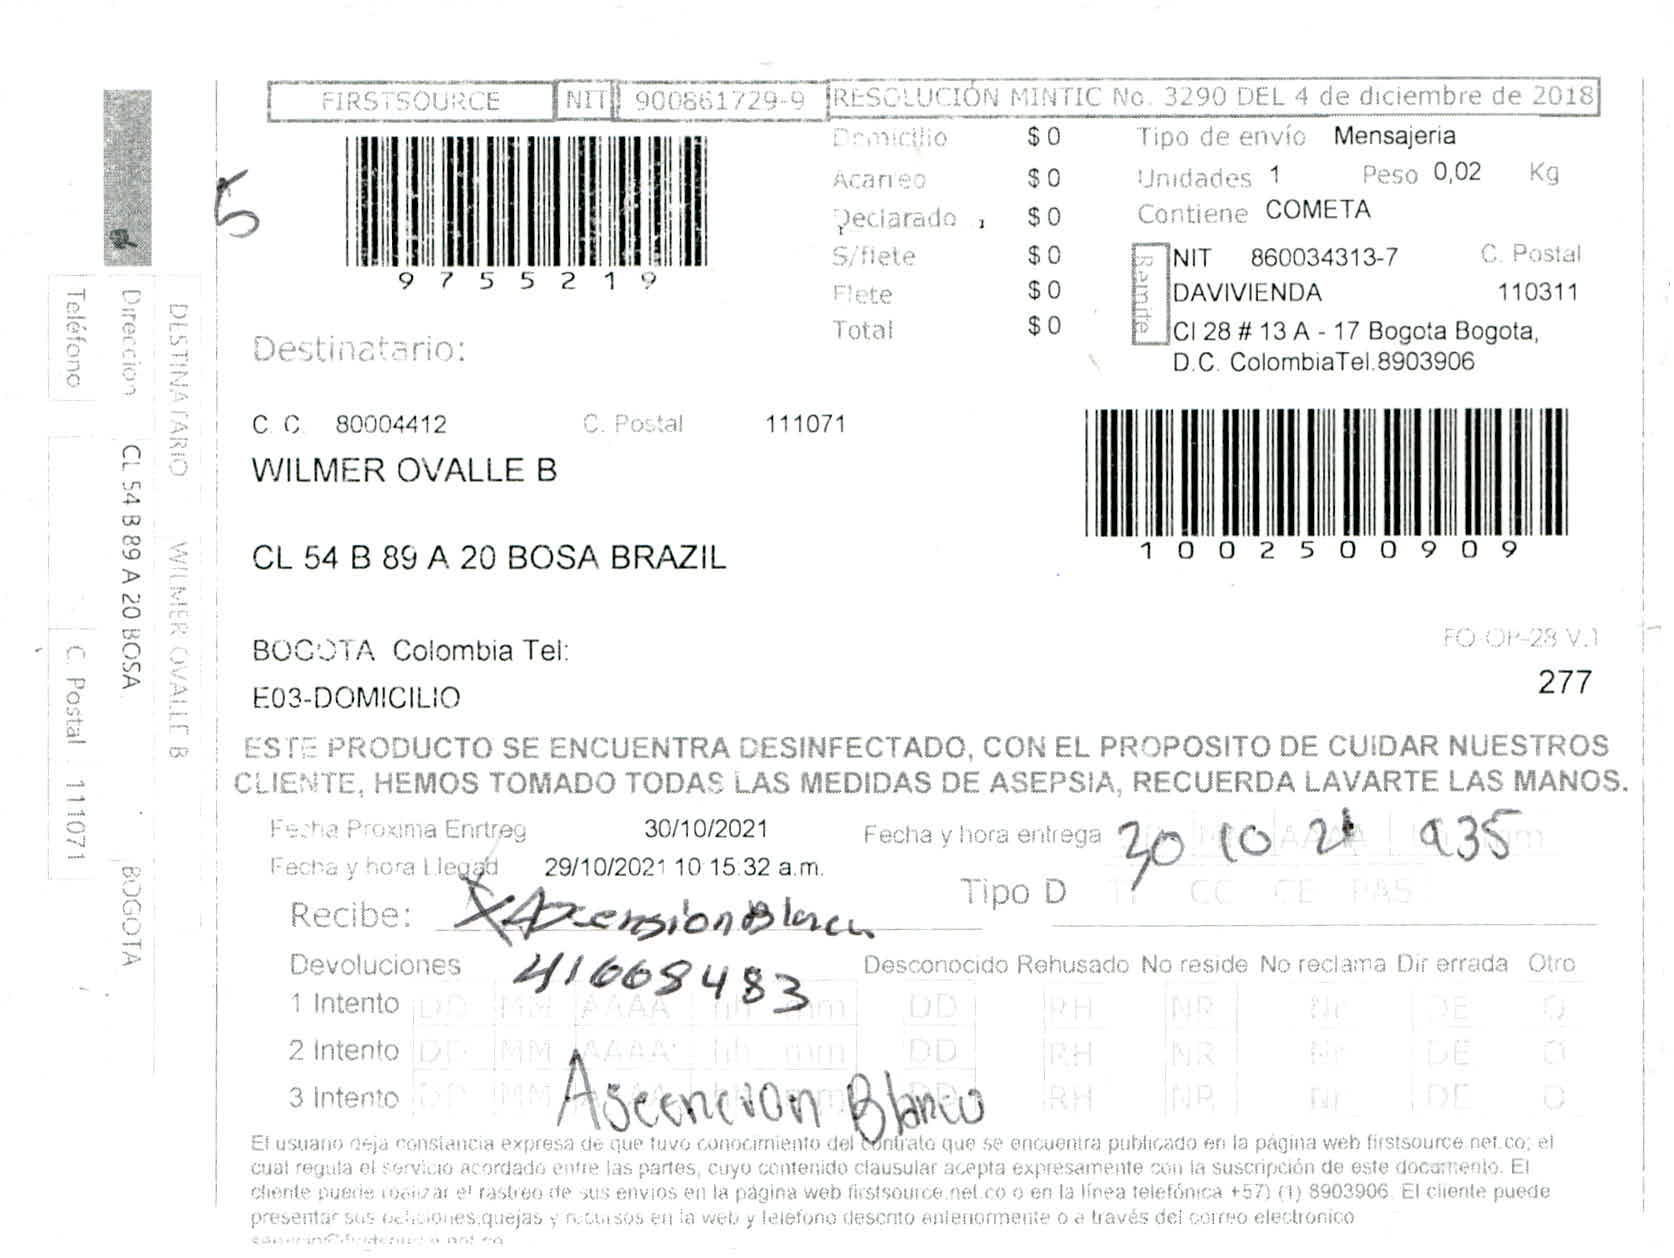 FIRSTSOURCE NIT 900861729-9 RESOLUCIÓN MINTIC No. 3290 DEL 4 de diciembre de 2018
5
9755219
Domicilio $ 0
Acarreo $ 0
Declarado $ 0
S/flete $ 0
Flete $ 0
Total $ 0
Tipo de envío Mensajeria
Unidades 1 Peso 0,02 Kg
Contiene COMETA
Remite
NIT 860034313-7 C. Postal
DAVIVIENDA 110311
Cl 28 # 13 A - 17 Bogota Bogota,
D.C. ColombiaTel.8903906
Destinatario:
C. C. 80004412 C. Postal 111071
WILMER OVALLE B
CL 54 B 89 A 20 BOSA BRAZIL
1002500909
BOGOTA Colombia Tel:
E03-DOMICILIO
FO-OP-28 V.1
277
ESTE PRODUCTO SE ENCUENTRA DESINFECTADO, CON EL PROPOSITO DE CUIDAR NUESTROS
CLIENTE, HEMOS TOMADO TODAS LAS MEDIDAS DE ASEPSIA, RECUERDA LAVARTE LAS MANOS.
Fecha Proxima Enrtreg 30/10/2021
Fecha y hora entrega 30 10 21 935
Fecha y hora Llegad 29/10/2021 10:15:32 a.m.
Tipo D TI CC CE PAS
Recibe: X Ascension Blanco
Devoluciones 41668483
Desconocido Rehusado No reside No reclama Dir errada Otro
1 Intento DD MM AAAA hh mm DD RH NR Nr DE O
2 Intento DD MM AAAA hh mm DD RH NR Nr DE O
3 Intento DD MM mm RH NR Nr DE O
Ascencion Blanco
El usuario deja constancia expresa de que tuvo conocimiento del contrato que se encuentra publicado en la página web firstsource.net.co; el
cual regula el servicio acordado entre las partes, cuyo contenido clausular acepta expresamente con la suscripción de este documento. El
cliente puede realizar el rastreo de sus envios en la página web firstsource.net.co o en la línea telefónica +57) (1) 8903906. El cliente puede
presentar sus peticiones,quejas y recursos en la web y telefono descrito anteriormente o a través del correo electronico
DESTINATARIO WILMER OVALLE B
Direccion CL 54 B 89 A 20 BOSA BOGOTA
Teléfono C. Postal 111071